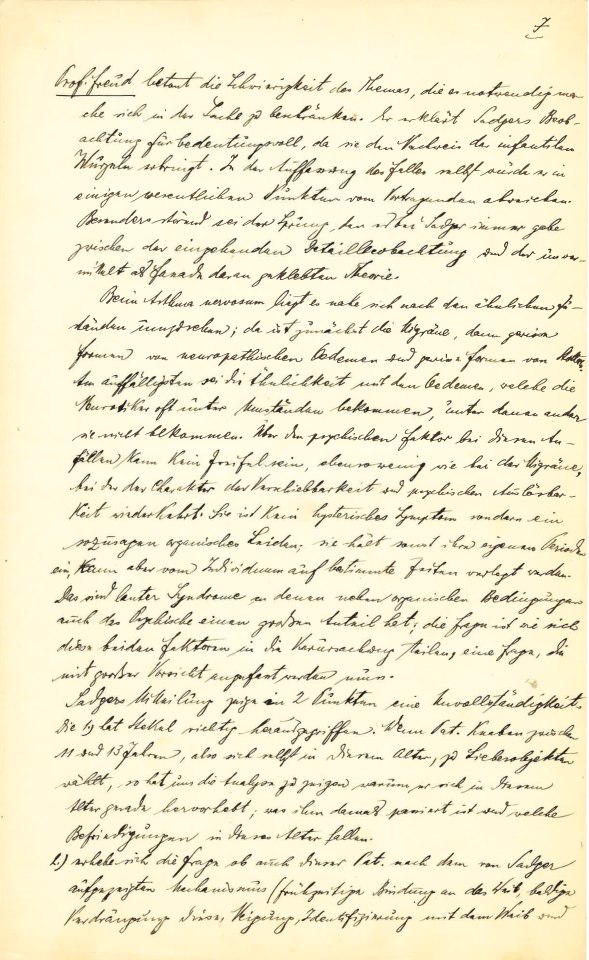 7
Prof. Freud betont die Schwierigkeit des Themas, die es notwendig ma-
che sich in der Sache zu beschränken. Er erklärt Sadgers Beob-
achtung für bedeutungsvoll, da sie den Nachweis der infantilen
Wurzeln erbringt. In der Auffassung des Falles selbst würde er in
einigen wesentlichen Punkten vom Vortragenden abweichen.
Besonders störend sei der Sprung, den es bei Sadger immer gebe
zwischen der eingehenden Detailbeobachtung und der unver-
mittelt als Fassade daran geklebten Theorie.
Beim Asthma nervosum liegt es nahe sich nach den ähnlichen Zu-
ständen umzusehen; da ist zunächst die Migräne, dann gewisse
Formen von neuropathischen Oedemen und gewisse Formen von
Am auffälligsten sei die Ähnlichkeit mit den Oedemen, welche die
Neurotiker oft unter Umständen bekommen, unter denen andere
sie nicht bekommen. Über den psychischen Faktor bei diesen An-
fällen kann kein Zweifel sein, ebensowenig wie bei der Migräne,
bei der der Charakter der Verschiebbarkeit und psychischen Auslösbar-
keit wiederkehrt. Sie ist kein hysterisches Symptom sondern ein
sozusagen organisches Leiden; sie hält sonst ihre eigenen Perioden
ein, kann aber vom Individuum auf bestimmte Zeiten verlegt werden.
Das sind lauter Syndrome an denen neben organischen Bedingungen
auch das Psychische einen großen Anteil hat; die Frage ist wie sich
diese beiden Faktoren in die Verursachung teilen, eine Frage, die
mit großer Vorsicht angefasst werden muss.
Sadgers Mitteilung zeige in 2 Punkten eine Unvollständigkeit.
Die 1) hat Stekel richtig herausgegriffen. Wenn Pat. Knaben zwischen
11 und 13 Jahren, also sich selbst in diesem Alter, zu Liebesobjekten
wählt, so hat uns die Analyse zu zeigen warum er sich in diesem
Alter gerade hervorhebt; was ihm damals passiert ist und welche
Befriedigungen in dieses Alter fallen.
2.) erhebe sich die Frage ob auch dieser Pat. nach dem von Sadger
aufgezeigten Mechanismus (frühzeitige Bindung an das Weib, baldige
Verdrängung dieser Neigung, Identifizierung mit dem Weib und